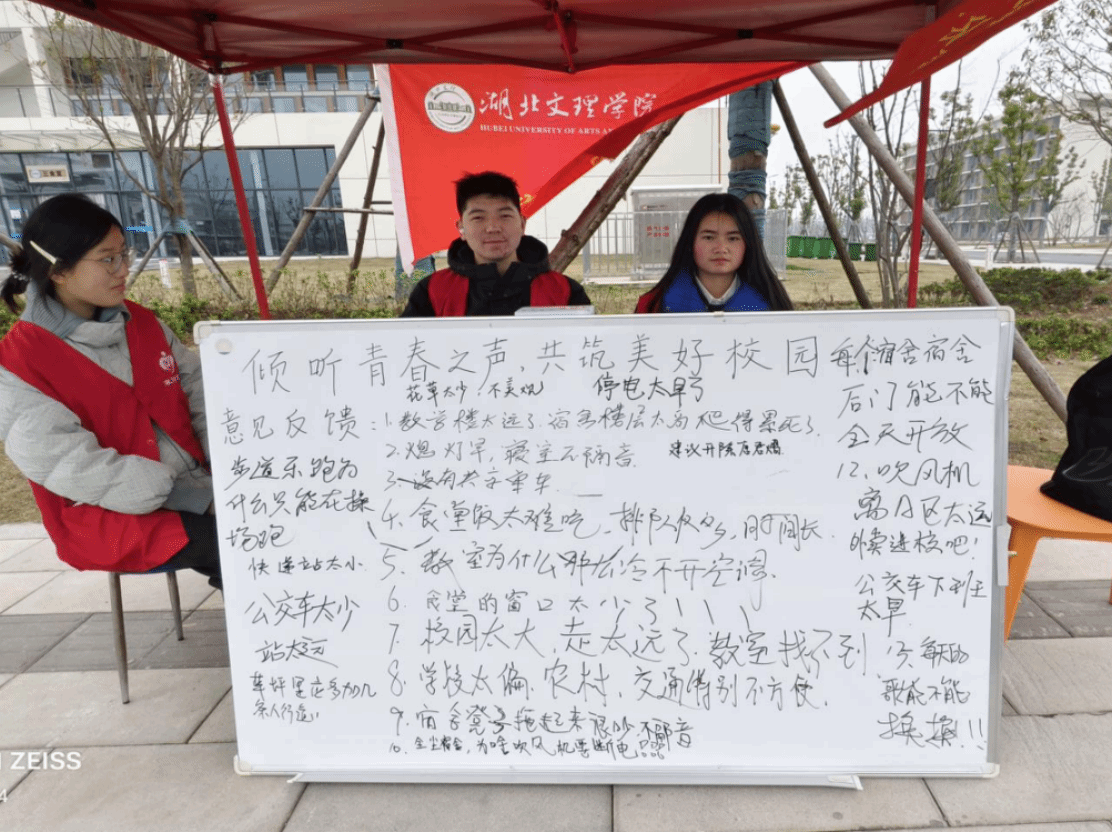 湖北文理学院
HUBEI UNIVERSITY OF ARTS AN
倾听青春之声,共筑美好校园
花草太少,不美观
停电太早了
意见反馈:
1.教学楼太远了,宿舍楼层太高,爬得累死了.
2.熄灯早,寝室不隔音.
建议开除唐君熠
3.没有共享单车
4.食堂饭太难吃,排队人多,时间长.
5.教室为什么那么冷不开空调.
6.食堂的窗口太少了!!!!
7.校园太大,走太远了,教室找不到
8.学校太偏,农村,交通特别不方便.
9.宿舍凳子拖起来很吵,不隔音
10.宿舍,为啥吹风机要断电
步道乐跑为
什么只能在操
场跑
快递站太小
公交车太少
站太远
草坪里应多加几
条人行道!
每个宿舍宿舍
后门能不能
全天开放
12.吹风机
离A区太远
外卖进校吧!
公交车下班
太早
13.每天的
歌能不能
换换!!!
ZEISS
4